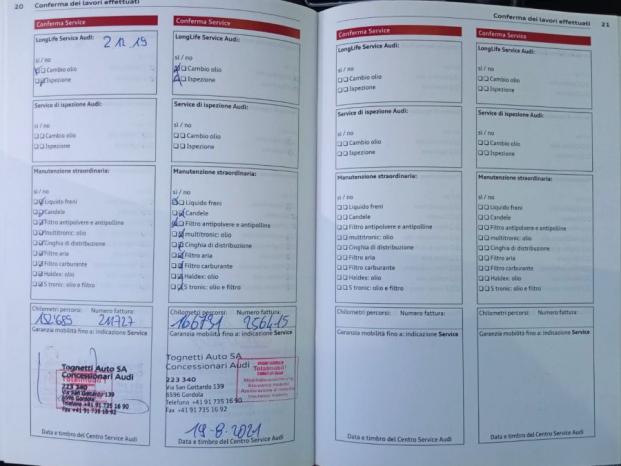 20 Conferma dei lavori effettuati
Conferma Service
LongLife Service Audi: 2 12 19
sì / no
Cambio olio
Ispezione
Service di ispezione Audi:
sì / no
Cambio olio
Ispezione
Manutenzione straordinaria:
sì / no
Liquido freni
Candele
Filtro antipolvere e antipolline
multitronic: olio
Cinghia di distribuzione
Filtro aria
Filtro carburante
Haldex: olio
S tronic: olio e filtro
Chilometri percorsi: Numero fattura:
211727
Garanzia mobilità fino a: indicazione Service
Tognetti Auto SA
Concessionari Audi
223 340
Via San Gottardo 139
6596 Gordola
Telefono +41 91 735 16 90
Fax +41 91 735 16 92
Data e timbro del Centro Service Audi
Conferma Service
LongLife Service Audi:
sì / no
Cambio olio
Ispezione
Service di ispezione Audi:
sì / no
Cambio olio
Ispezione
Manutenzione straordinaria:
sì / no
Liquido freni
Candele
Filtro antipolvere e antipolline
multitronic: olio
Cinghia di distribuzione
Filtro aria
Filtro carburante
Haldex: olio
S tronic: olio e filtro
Chilometri percorsi: Numero fattura:
166791 256415
Garanzia mobilità fino a: indicazione Service
Tognetti Auto SA
Concessionari Audi
223 340
Via San Gottardo 139
6596 Gordola
Telefono +41 91 735 16 90
Fax +41 91 735 16 92
Totalmobil!
19-8-2021
Data e timbro del Centro Service Audi
Conferma dei lavori effettuati 21
Conferma Service
LongLife Service Audi:
sì / no
Cambio olio
Ispezione
Service di ispezione Audi:
sì / no
Cambio olio
Ispezione
Manutenzione straordinaria:
sì / no
Liquido freni
Candele
Filtro antipolvere e antipolline
multitronic: olio
Cinghia di distribuzione
Filtro aria
Filtro carburante
Haldex: olio
S tronic: olio e filtro
Chilometri percorsi: Numero fattura:
Garanzia mobilità fino a: indicazione Service
Data e timbro del Centro Service Audi
Conferma Service
LongLife Service Audi:
sì / no
Cambio olio
Ispezione
Service di ispezione Audi:
sì / no
Cambio olio
Ispezione
Manutenzione straordinaria:
sì / no
Liquido freni
Candele
Filtro antipolvere e antipolline
multitronic: olio
Cinghia di distribuzione
Filtro aria
Filtro carburante
Haldex: olio
S tronic: olio e filtro
Chilometri percorsi: Numero fattura:
Garanzia mobilità fino a: indicazione Service
Data e timbro del Centro Service Audi